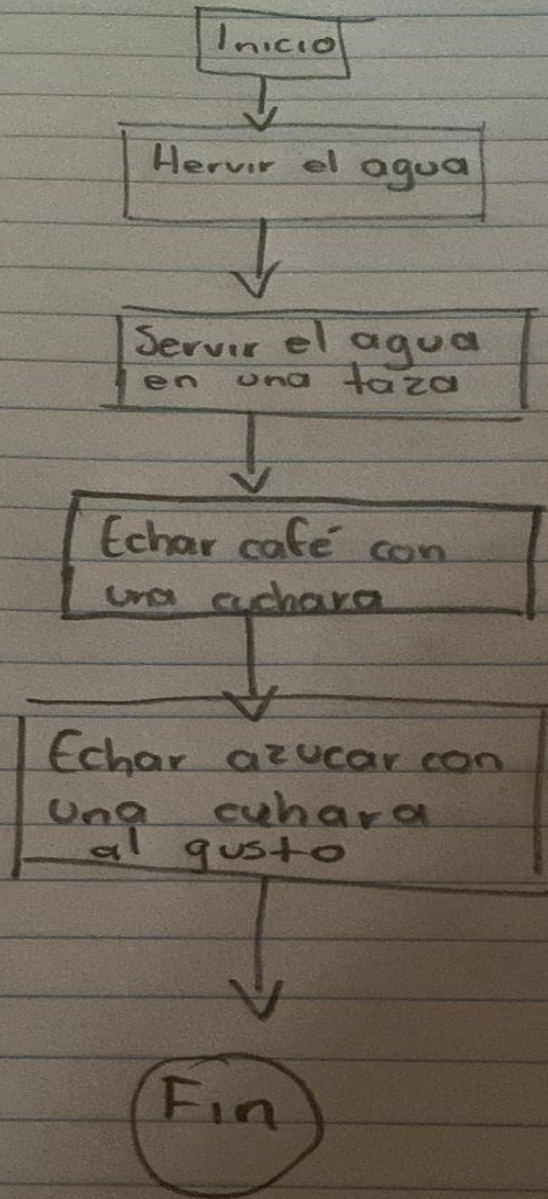 Inicio
Hervir el agua
Servir el agua
en una taza
Echar café con
una cuchara
Echar azucar con
una cuhara
al gusto
Fin